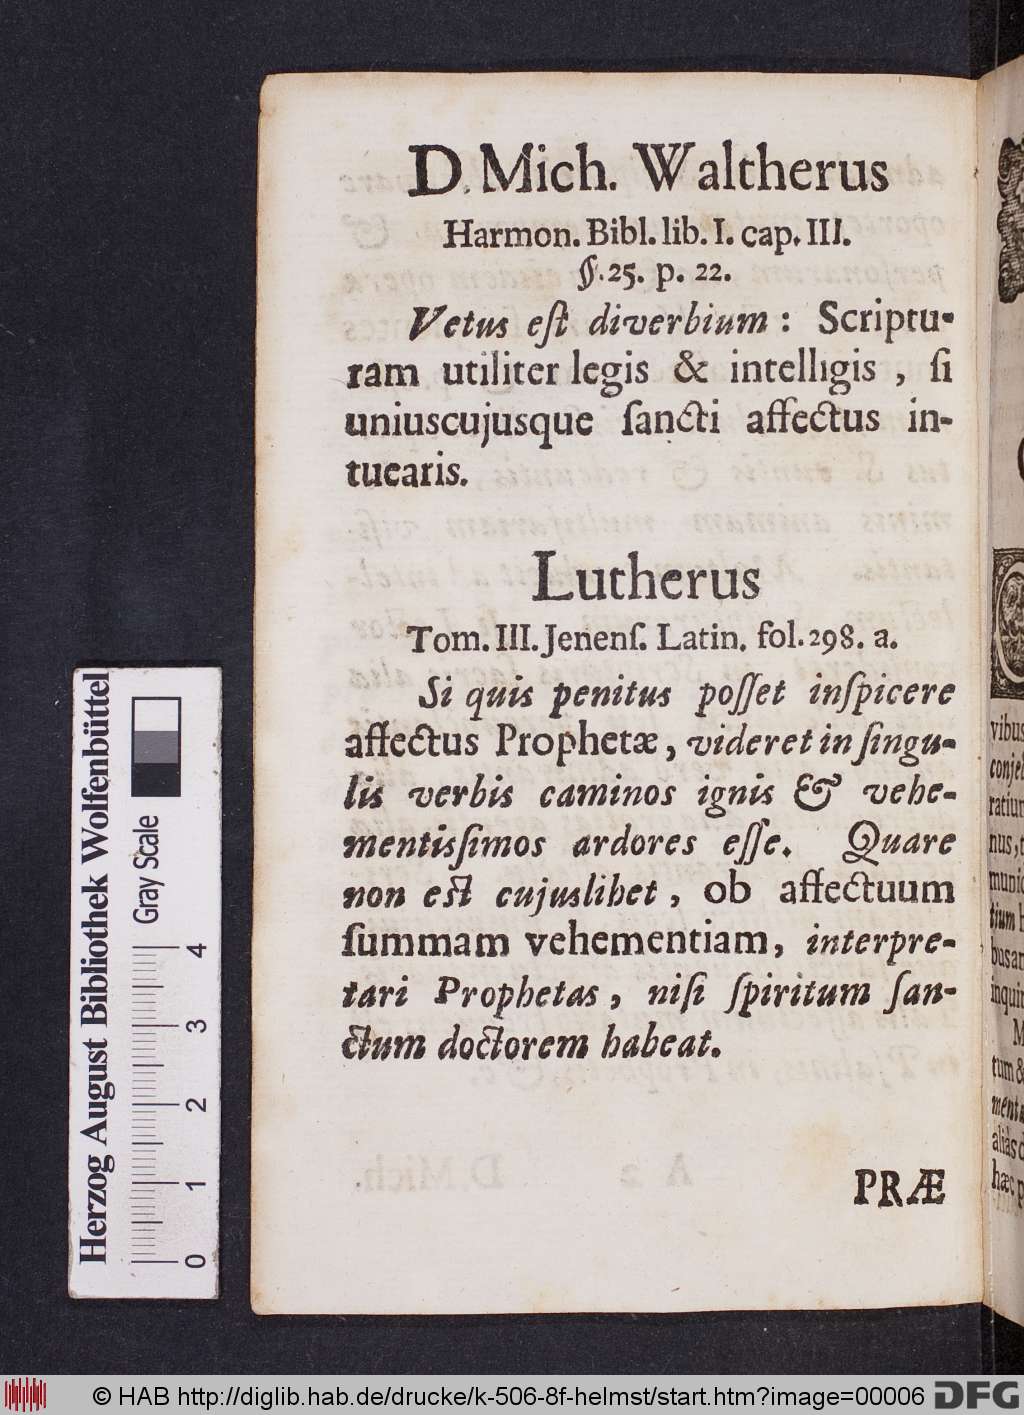 D. Mich. Waltherus
Harmon. Bibl. lib. I. cap. III.
§. 25. p. 22.
Vetus eſt diverbium : Scriptu-
ram utiliter legis & intelligis , ſi
uniuscujusque ſancti affectus in-
tuearis.
Lutherus
Tom. III. Jenenſ. Latin. fol. 298. a.
Si quis penitus poſſet inſpicere
affectus Prophetæ, videret in ſingu-
lis verbis caminos ignis & vehe-
mentisſimos ardores eſſe. Quare
non eſt cujuslibet , ob affectuum
ſummam vehementiam, interpre-
tari Prophetas, niſi ſpiritum ſan-
ctum doctorem habeat.
PRÆ
vibus
nus, t
tium
inquir
tum &
aliàs
Herzog August Bibliothek Wolfenbüttel
Gray Scale
0 1 2 3 4
© HAB http://diglib.hab.de/drucke/k-506-8f-helmst/start.htm?image=00006
DFG